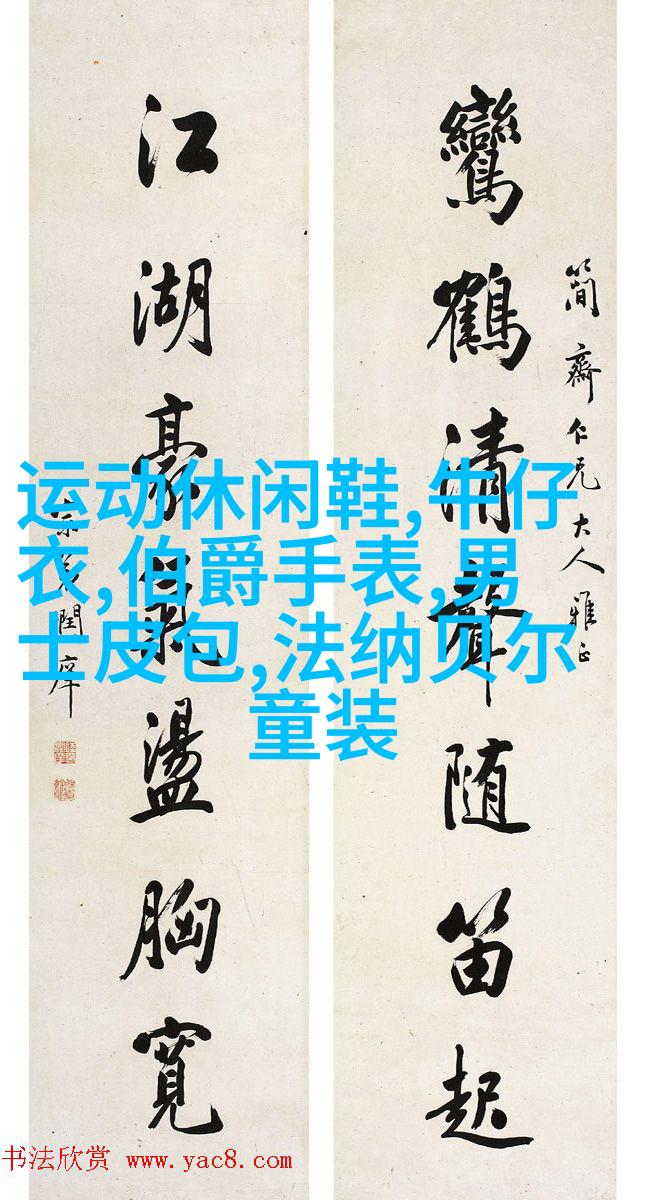 簡齋仁兄大人雅正
鸞鶴清聲随笛起
江湖豪氣盪胸寬
运动休闲鞋,牛仔
衣,伯爵手表,男
士皮包,法纳贝尔
童装
书法欣赏 www.yac8.com